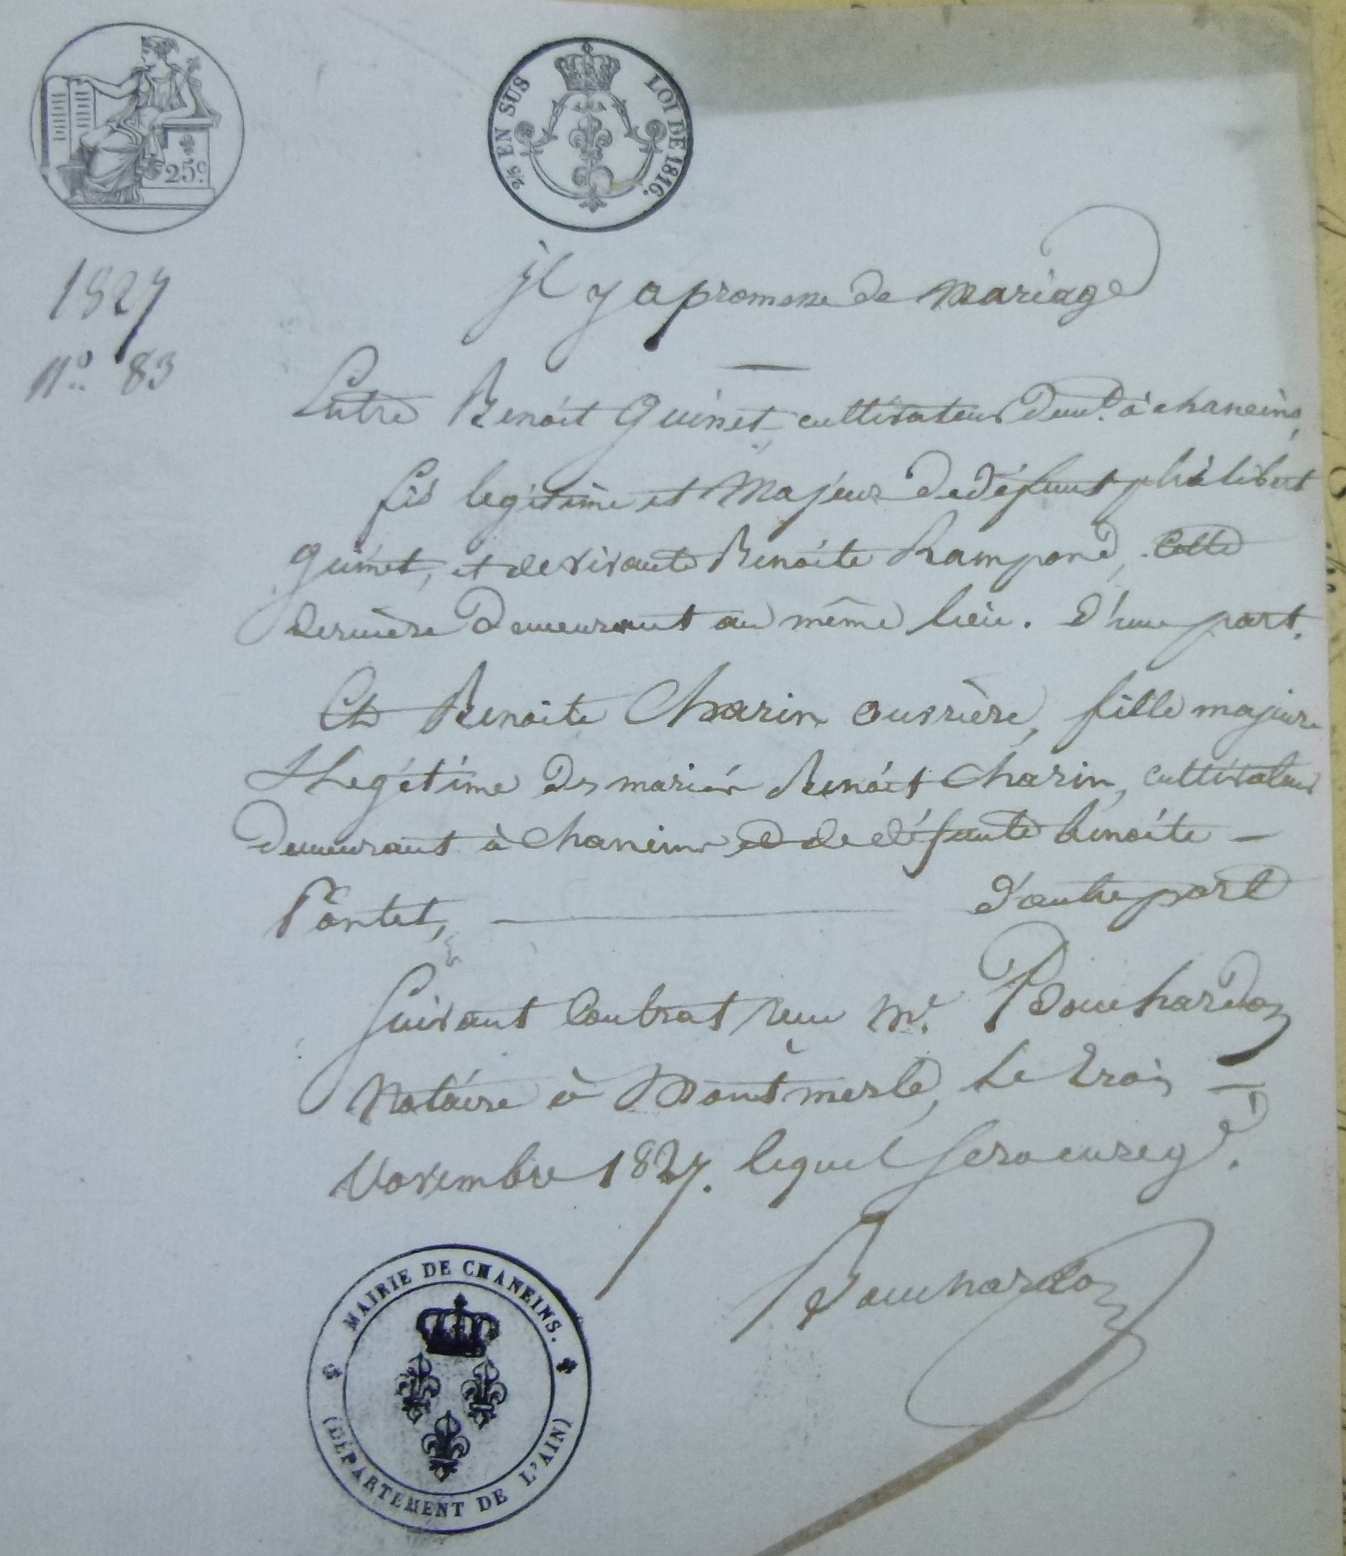 25 c.
2/5 EN SUS LOI DE 1816.
1827
N.° 83
il y a promesse de Mariage
Entre Benoit Guinet, cultivateur dem.t à chaneins,
fils legitime et Majeur de défunt philibert
guinet, et de vivante Benoite Rampond, Cette
dernière demeurant au même lieu. d'une part.
Et Benoite Charin ouvrière, fille majeure
& Legétime des mariés Benoit Charin, cultivateur
demeurant à Chaneins et de défunte benoite —
Pontet, — d'autre part
Suivant Contrat reçu M.e Bouchardon
Notaire à Montmerle, le trois —
Novembre 1827. lequel sera enreg.é
Bouchardon
MAIRIE DE CHANEINS.
(DÉPARTEMENT DE L'AIN)